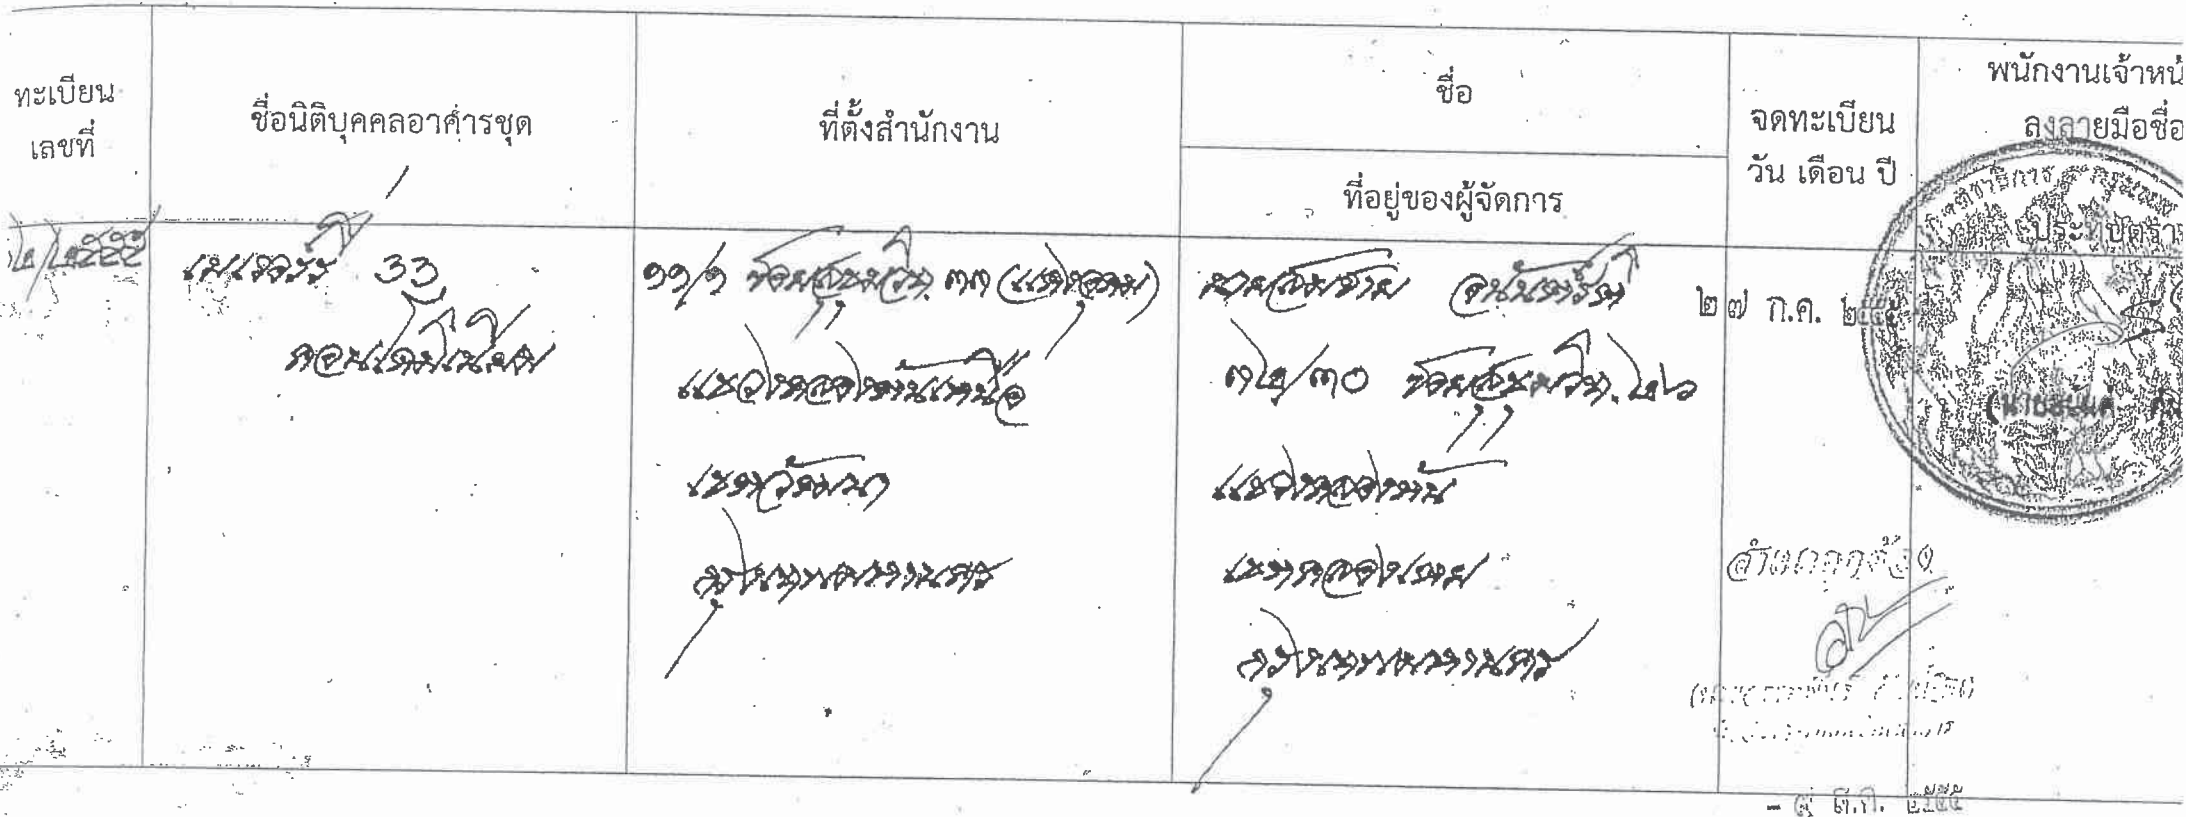 ทะเบียน
เลขที่
ชื่อนิติบุคคลอาคารชุด
ที่ตั้งสำนักงาน
ชื่อ
ที่อยู่ของผู้จัดการ
จดทะเบียน
วัน เดือน ปี
พนักงานเจ้าหน้
ลงลายมือชื่อ
ประทับตรา
๒/๒๕๕๕
เมเจอร์ 33
คอนโดมิเนียม
๑๑/๑ ซอยสุขุมวิท ๓๓ (แดงอุดม)
แขวงคลองตันเหนือ
เขตวัฒนา
กรุงเทพมหานคร
นายสมชาย
๓๒/๓๐ ซอยสุขุมวิท ๒๖
แขวงคลองตัน
เขตคลองเตย
กรุงเทพมหานคร
๒๗ ก.ค. ๒๕๕๕
สำเนาถูกต้อง
- ๙ ต.ค. ๒๕๕๕